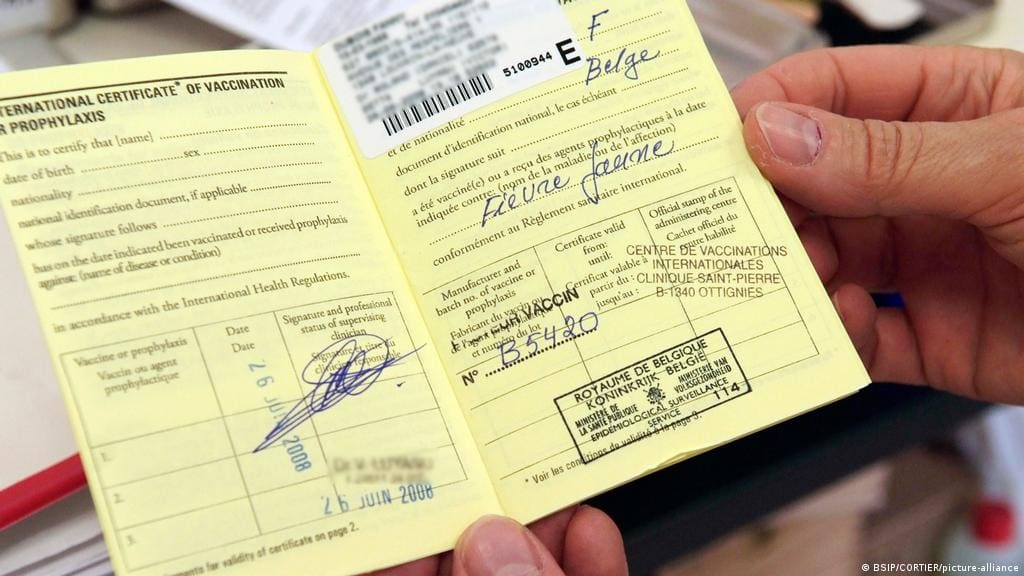 TERNATIONAL CERTIFICATE* OF VACCINATION
R PROPHYLAXIS
This is to certify that [name]
date of birth sex
nationality
national identification document, if applicable
whose signature follows
has on the date indicated been vaccinated or received prophylaxis
against: (name of disease or condition)
in accordance with the International Health Regulations.
Vaccine or prophylaxis
Vaccin ou agent
prophylactique
Date
Date
Signature and professional
status of supervising
clinician
1.
2.
3.
26 JUIN 2008
26 JUIN 2008
for validity of certificate on page 2.
5100944 E
F
Belge
et de nationalité
document d'identification national, le cas échéant
dont la signature suit
a été vacciné(e) ou a reçu des agents prophylactiques à la date
indiquée contre: (nom de la maladie ou de l'affection)
Fièvre Jaune
conformément au Règlement sanitaire international.
Manufacturer and
batch no. of vaccine or
prophylaxis
Fabricant du
de l'agent
et numéro du lot
Certificate valid
from:
until:
Certificat valable
partir du :
jusqu'au :
Official stamp of the
administering centre
Cachet officiel du
centre habilité
CENTRE DE VACCINATIONS
INTERNATIONALES
CLINIQUE SAINT-PIERRE
B-1340 OTTIGNIES
VACCIN
N° B5420
ROYAUME DE BELGIQUE
KONINKRIJK BELGIË
MINISTÈRE DE
LA SANTÉ PUBLIQUE
MINISTERIE VAN
VOLKSGEZONDHEID
EPIDEMIOLOGICAL SURVEILLANCE
SERVICE 114
* Voir les conditions de validité à la page 3.
© BSIP/CORTIER/picture-alliance